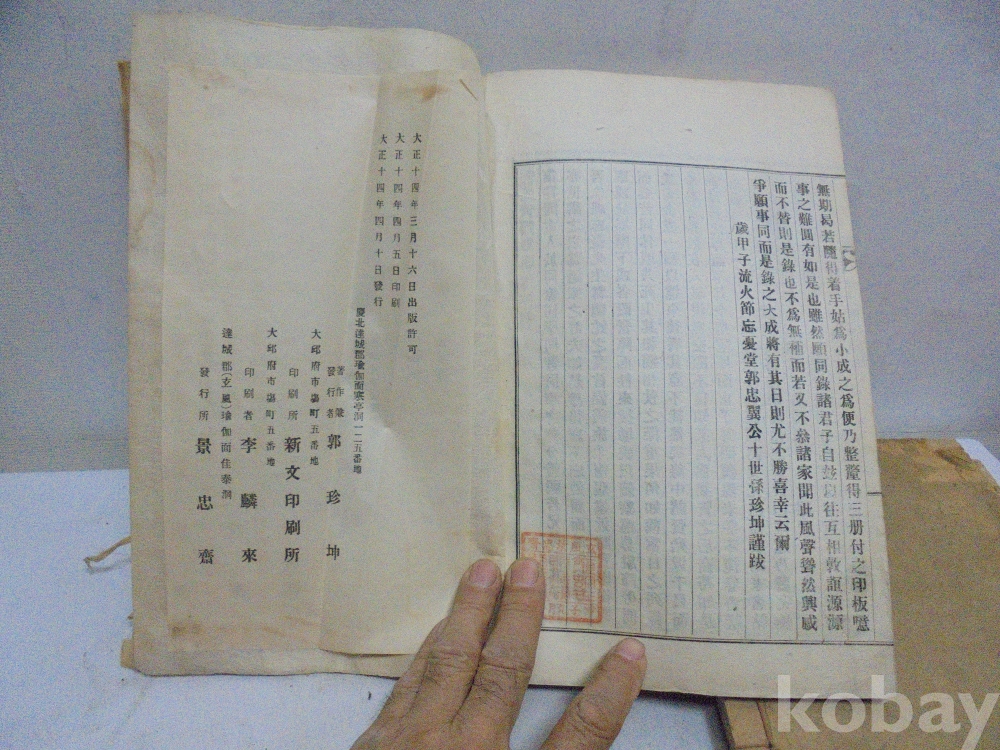 無期曷若隨得着手姑爲小成之爲便乃整釐得三册付之印板噫
事之難圓有如是也雖然願同錄諸君子自玆以往互相敦誼源源
而不替則是錄也不爲無補而若又不叅諸家聞此風聲聳然興感
爭願事同而是錄之大成將有其日則尤不勝喜幸云爾
歲甲子流火節忘憂堂郭忠翼公十世孫珍坤謹跋
大正十四年三月十六日出版許可
大正十四年四月五日印刷
大正十四年四月十日發行
慶北達城郡瑜伽面寒亭洞一二五番地
著作兼
發行者 郭珍坤
大邱府市塲町五番地
印刷所 新文印刷所
大邱府市塲町五番地
印刷者 李麟來
達城郡(玄風)瑜伽面佳泰洞
發行所 景忠齋
kobay